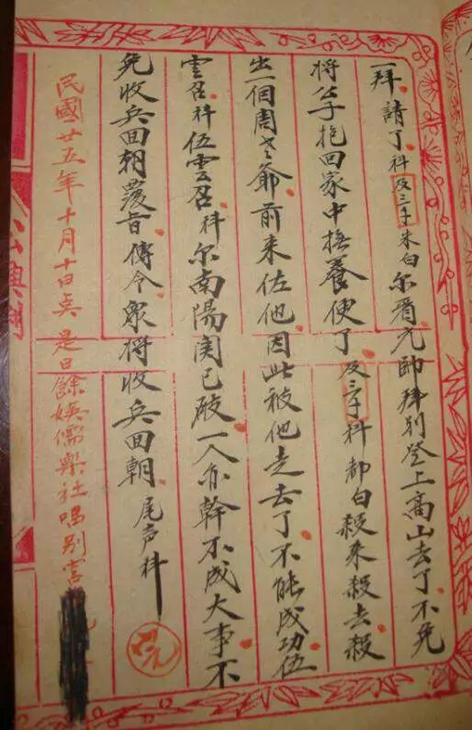 一拜請了科及三千末白尔看元帥拜別登上高山去了不免
将公子抱回家中撫養便了及三千科都白殺來殺去殺
出一個周老爺前来佐他因此被他走去了不能成功伍
雲召科伍雲召科尔南陽関已破一人亦幹不成大事不
免收兵回朝覆旨傳令衆将收兵回朝尾声科
完
民國廿五年十月十日矣是日餘娛儒樂社唱別宮